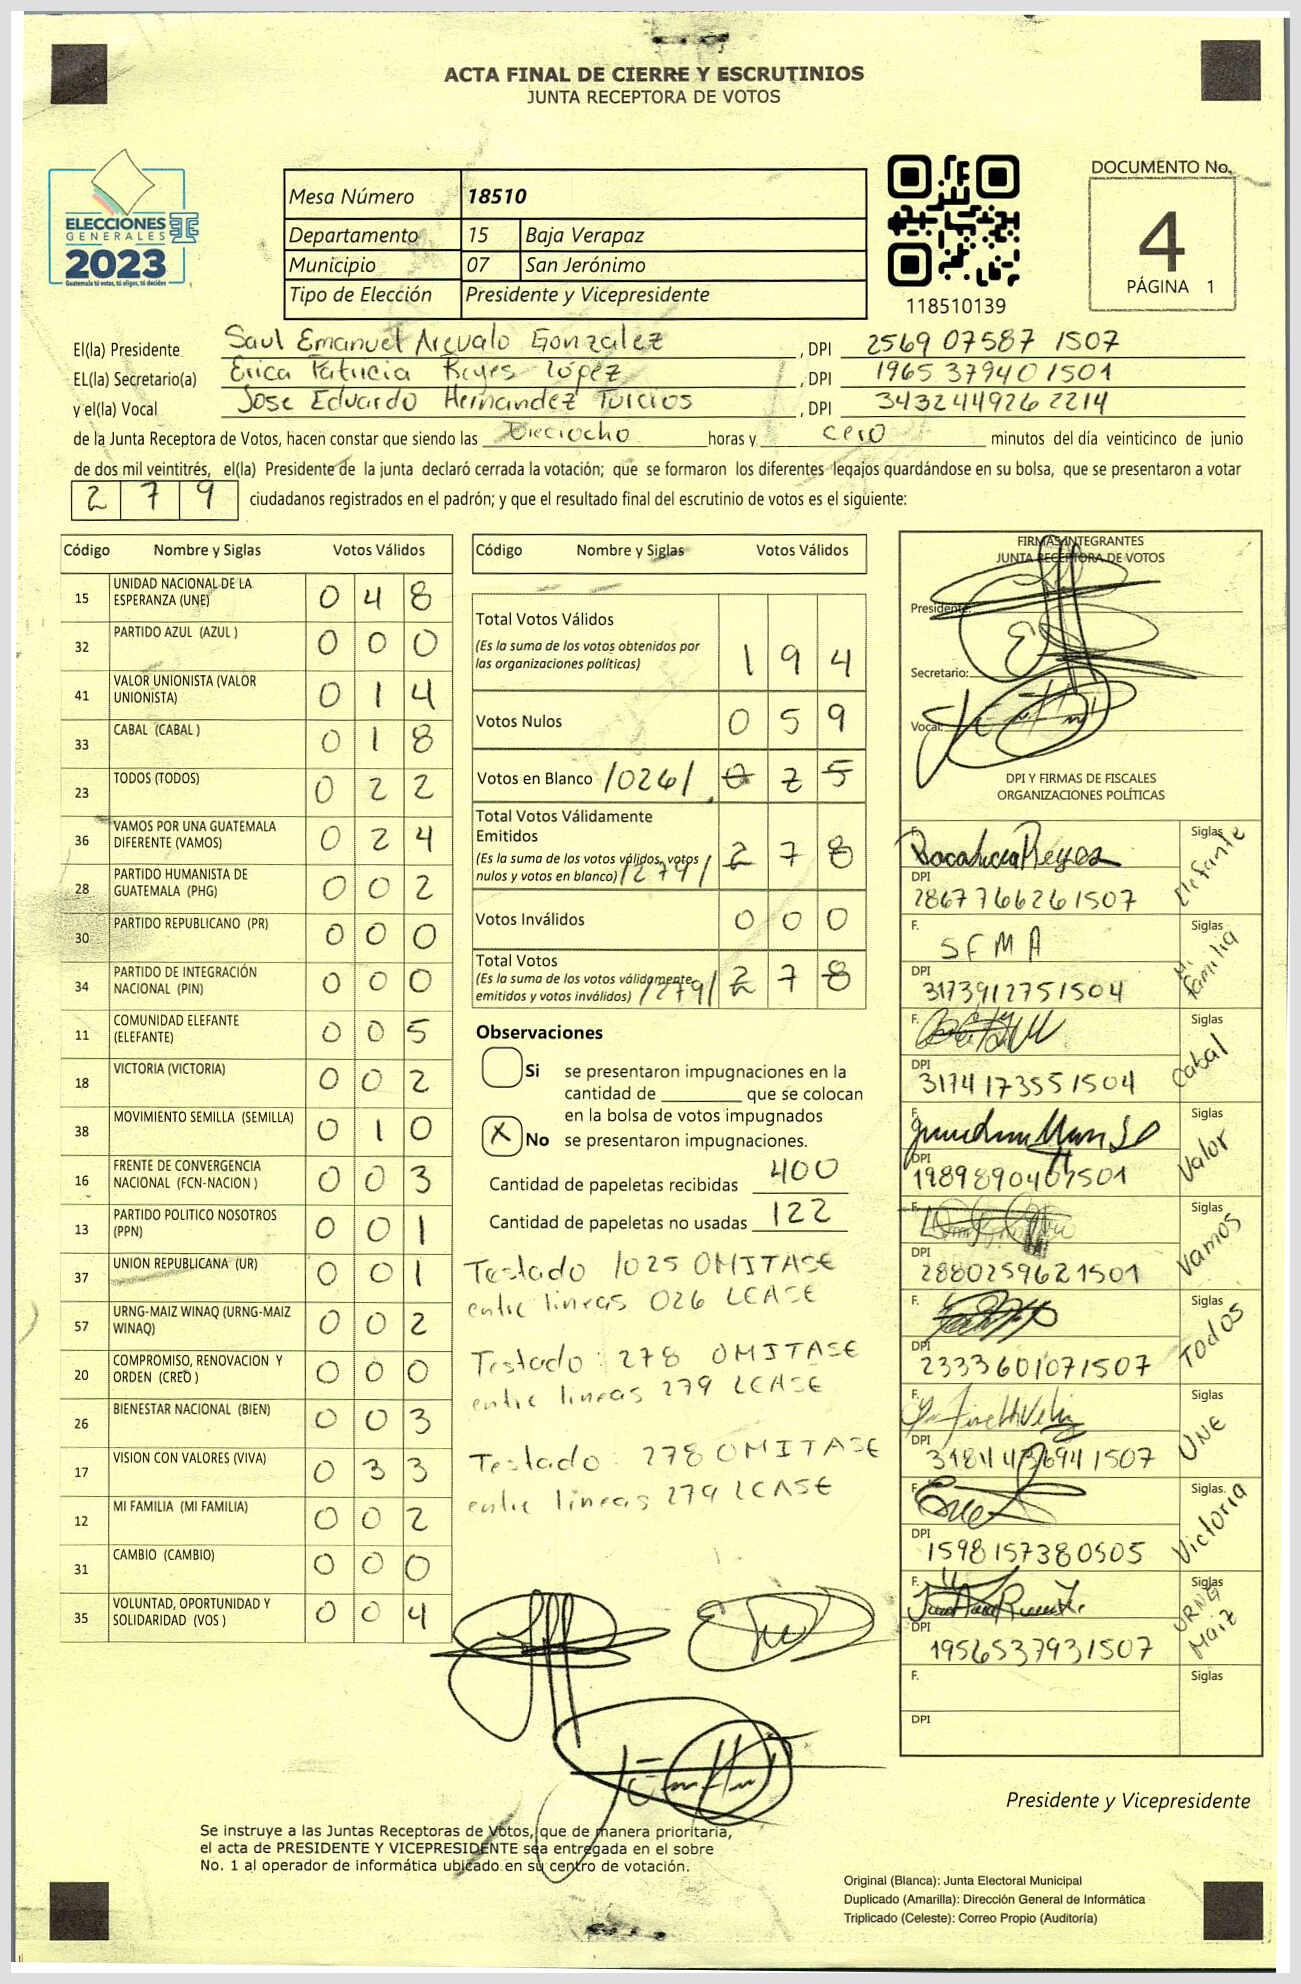 ACTA FINAL DE CIERRE Y ESCRUTINIOS
JUNTA RECEPTORA DE VOTOS
ELECCIONES
GENERALES
2023
Guatemala tú votas, tú eliges, tú decides
Mesa Número 18510
Departamento 15 Baja Verapaz
Municipio 07 San Jerónimo
Tipo de Elección Presidente y Vicepresidente
118510139
DOCUMENTO No.
4
PÁGINA 1
El(la) Presidente Saul Emanuel Arevalo Gonzalez, DPI 2569 07587 1507
EL(la) Secretario(a) Erica Patricia Reyes López, DPI 1965 37940 1501
y el(la) Vocal Jose Eduardo Hernandez Turcios, DPI 3432449262214
de la Junta Receptora de Votos, hacen constar que siendo las Dieciocho horas y cero minutos del día veinticinco de junio
de dos mil veintitrés, el(la) Presidente de la junta declaró cerrada la votación; que se formaron los diferentes legajos guardándose en su bolsa, que se presentaron a votar
2 7 9 ciudadanos registrados en el padrón; y que el resultado final del escrutinio de votos es el siguiente:
Código Nombre y Siglas Votos Válidos
15 UNIDAD NACIONAL DE LA ESPERANZA (UNE) 0 4 8
32 PARTIDO AZUL (AZUL ) 0 0 0
41 VALOR UNIONISTA (VALOR UNIONISTA) 0 1 4
33 CABAL (CABAL ) 0 1 8
23 TODOS (TODOS) 0 2 2
36 VAMOS POR UNA GUATEMALA DIFERENTE (VAMOS) 0 2 4
28 PARTIDO HUMANISTA DE GUATEMALA (PHG) 0 0 2
30 PARTIDO REPUBLICANO (PR) 0 0 0
34 PARTIDO DE INTEGRACIÓN NACIONAL (PIN) 0 0 0
11 COMUNIDAD ELEFANTE (ELEFANTE) 0 0 5
18 VICTORIA (VICTORIA) 0 0 2
38 MOVIMIENTO SEMILLA (SEMILLA) 0 1 0
16 FRENTE DE CONVERGENCIA NACIONAL (FCN-NACION ) 0 0 3
13 PARTIDO POLITICO NOSOTROS (PPN) 0 0 1
37 UNION REPUBLICANA (UR) 0 0 1
57 URNG-MAIZ WINAQ (URNG-MAIZ WINAQ) 0 0 2
20 COMPROMISO, RENOVACION Y ORDEN (CREO ) 0 0 0
26 BIENESTAR NACIONAL (BIEN) 0 0 3
17 VISION CON VALORES (VIVA) 0 3 3
12 MI FAMILIA (MI FAMILIA) 0 0 2
31 CAMBIO (CAMBIO) 0 0 0
35 VOLUNTAD, OPORTUNIDAD Y SOLIDARIDAD (VOS ) 0 0 4
Código Nombre y Siglas Votos Válidos
Total Votos Válidos
(Es la suma de los votos obtenidos por
las organizaciones políticas) 1 9 4
Votos Nulos 0 5 9
Votos en Blanco /026/ 0 2 5
Total Votos Válidamente
Emitidos
(Es la suma de los votos válidos, votos
nulos y votos en blanco) /279/ 2 7 8
Votos Inválidos 0 0 0
Total Votos
(Es la suma de los votos válidamente
emitidos y votos inválidos) /279/ 2 7 8
Observaciones
Si se presentaron impugnaciones en la
cantidad de ________ que se colocan
en la bolsa de votos impugnados
X No se presentaron impugnaciones.
Cantidad de papeletas recibidas 400
Cantidad de papeletas no usadas 122
Testado /025 OMITASE
entre lineas 026 LEASE
Testado: 278 OMITASE
entre lineas 279 LEASE
Testado: 278 OMITASE
entre lineas 279 LEASE
FIRMAS INTEGRANTES
JUNTA RECEPTORA DE VOTOS
Presidente:
Secretario:
Vocal:
DPI Y FIRMAS DE FISCALES
ORGANIZACIONES POLÍTICAS
F. Siglas Elefante
DPI 2867766261507
F. SFMA Siglas Mi familia
DPI 3173912751504
F. Siglas Cabal
DPI 3174173551504
F. Siglas Valor
DPI 1989890407501
F. Siglas Vamos
DPI 2880259621501
F. Siglas TODOS
DPI 2333601071507
F. Siglas UNE
DPI
F. Siglas. Victoria
DPI 1598157380505
F. Siglas URNG Maiz
DPI 1956537931507
F. Siglas
DPI
Presidente y Vicepresidente
Se instruye a las Juntas Receptoras de Votos, que de manera prioritaria,
el acta de PRESIDENTE Y VICEPRESIDENTE sea entregada en el sobre
No. 1 al operador de informática ubicado en su centro de votación.
Original (Blanca): Junta Electoral Municipal
Duplicado (Amarilla): Dirección General de Informática
Triplicado (Celeste): Correo Propio (Auditoría)